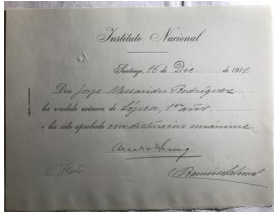 Instituto Nacional
Santiago, 16 de Dic de 1912
Don Jorje Alessandri Rodríguez
ha rendido exámen de Lójica, 1er año
i ha sido aprobado con distincion unánime